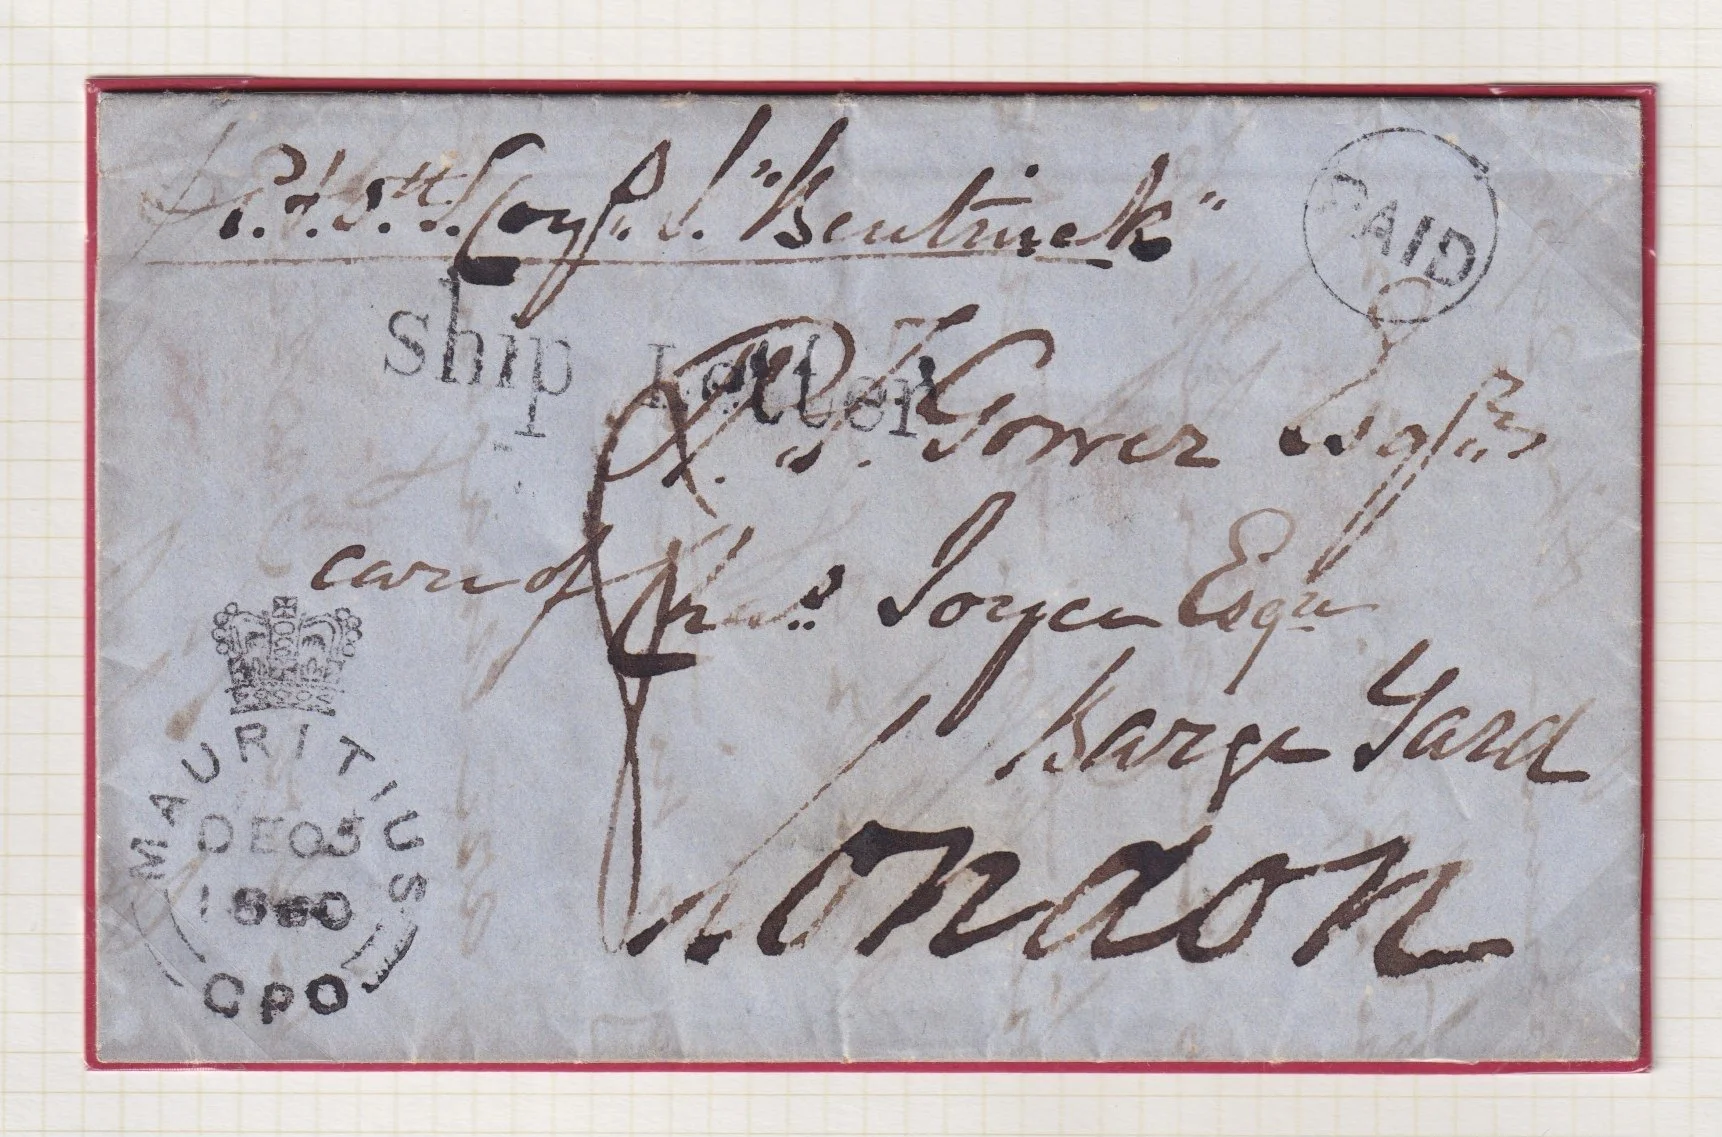 Coy's S. "Bentinck"
PAID
Ship Letter
R. S. J. Gower Esqre
care of Chas. Joyce Esqre
Barge Yard
London
MAURITIUS
DE 05
1860
GPO